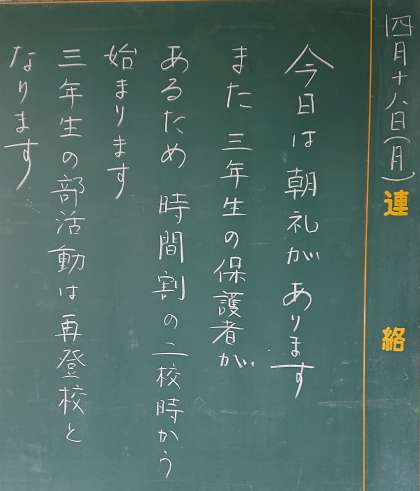 四月十八日(月)
連絡
今日は朝礼があります
また 三年生の保護者が
あるため 時間割の二校時から
始まります
三年生の部活動は再登校と
なります